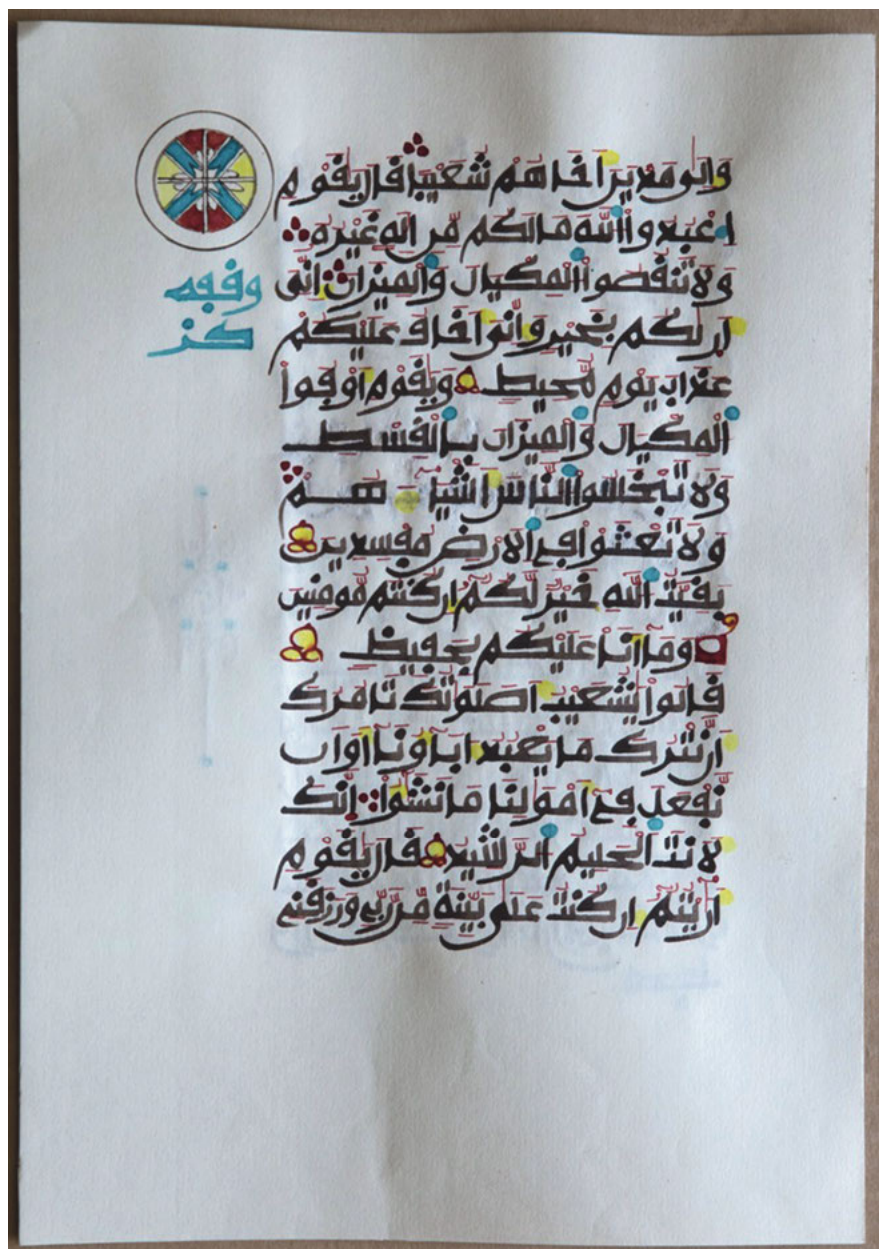 وإلى مدين أخاهم شعيبا قال يقوم
اعبدوا الله ما لكم من إله غيره
ولا تنقصوا المكيال والميزان إني
أريكم بخير وإني أخاف عليكم
عذاب يوم محيط ويقوم أوفوا
المكيال والميزان بالقسط
ولا تبخسوا الناس أشياءهم
ولا تعثوا في الارض مفسدين
بقيت الله خير لكم إن كنتم مومنين
وما أنا عليكم بحفيظ
قالوا يشعيب أصلوتك تامرك
أن نترك ما يعبد ءاباؤنا أو أن
نفعل في أمولنا ما نشؤا إنك
لانت الحليم الرشيد قال يقوم
أريتم إن كنت على بينة من ربي ورزقني
كز